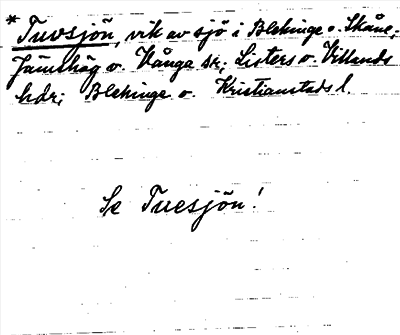 * Tuvsjön, vik av sjö i Blekinge o. Skåne;
Jämshög o. Vånga sr; Listers o. Villands
hdr; Blekinge o. Kristianstads l.
Se Tuesjön!